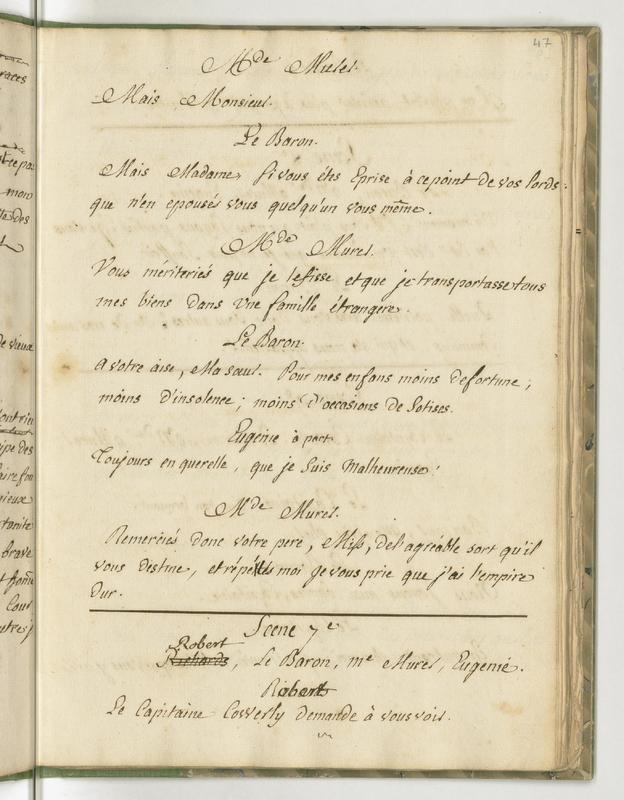 47
Mde Murer.
Mais Monsieur.
Le Baron.
Mais Madame, si vous étes Eprise à ce point de vos Lords.
que n'en epousés vous quelqu'un vous même.
Mde Murer.
Vous mériteriés que je le fisse et que je transportasse tous
mes biens dans une famille étrangere.
Le Baron.
A votre aise, Ma sœur. Pour mes enfans moins de fortune;
moins d'insolence; moins d'occasions de Sotises.
Eugenie à part.
Toujours en querelle, que je suis Malheureuse!
Mde Murer.
Remerciés donc votre pere, Miss, de l'agréable sort qu'il
vous destine, et répetés moi je vous prie que j'ai l'empire
dur.
Scene 7e
Robert
Richards, Le Baron, me Murer, Eugenie.
Robert
Le Capitaine Cowerly demande à vous voir.